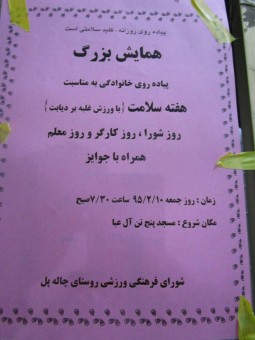 پیاده روی روزانه - کلید سلامتی است
همایش بزرگ
پیاده روی خانوادگی به مناسبت
هفته سلامت { با ورزش غلبه بر دیابت }
روز شورا ، روز کارگر و روز معلم
همراه با جوایز
زمان : روز جمعه ۹۵/۲/۱۰ ساعت ۷/۳۰ صبح
مکان شروع : مسجد پنج تن آل عبا
شورای فرهنگی ورزشی روستای چاله پل